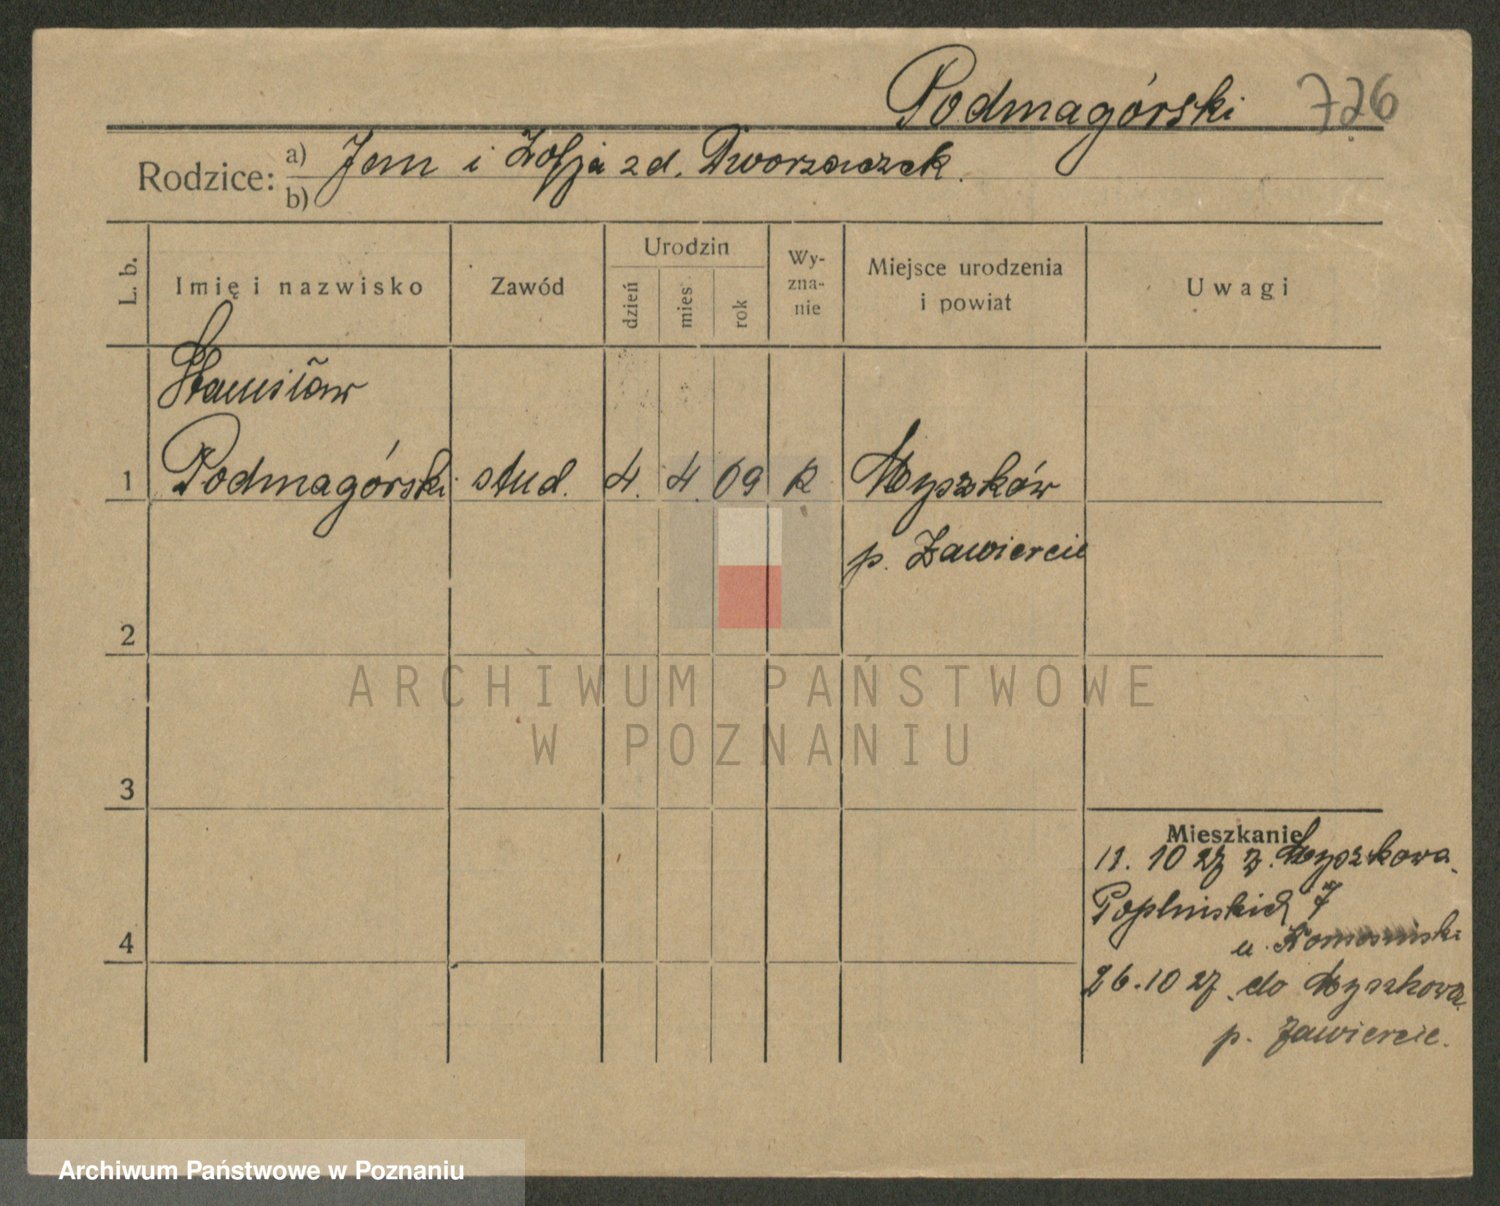 Podmagórski 726
Rodzice: a) Jan i Zofja z d. Dworzaczek.
b)
L. b. Imię i nazwisko Zawód Urodzin dzień mies rok Wy-zna-nie Miejsce urodzenia i powiat Uwagi
Stanisław
1 Podmagórski stud. 4. 4. 09 R Myszków
p. Zawiercie
2
ARCHIWUM PAŃSTWOWE
W POZNANIU
3
Mieszkanie
11. 10 27 z Myszkowa.
Poplińskich 7
u
4
26. 10 27 do Myszkowa
p. Zawiercie.
Archiwum Państwowe w Poznaniu